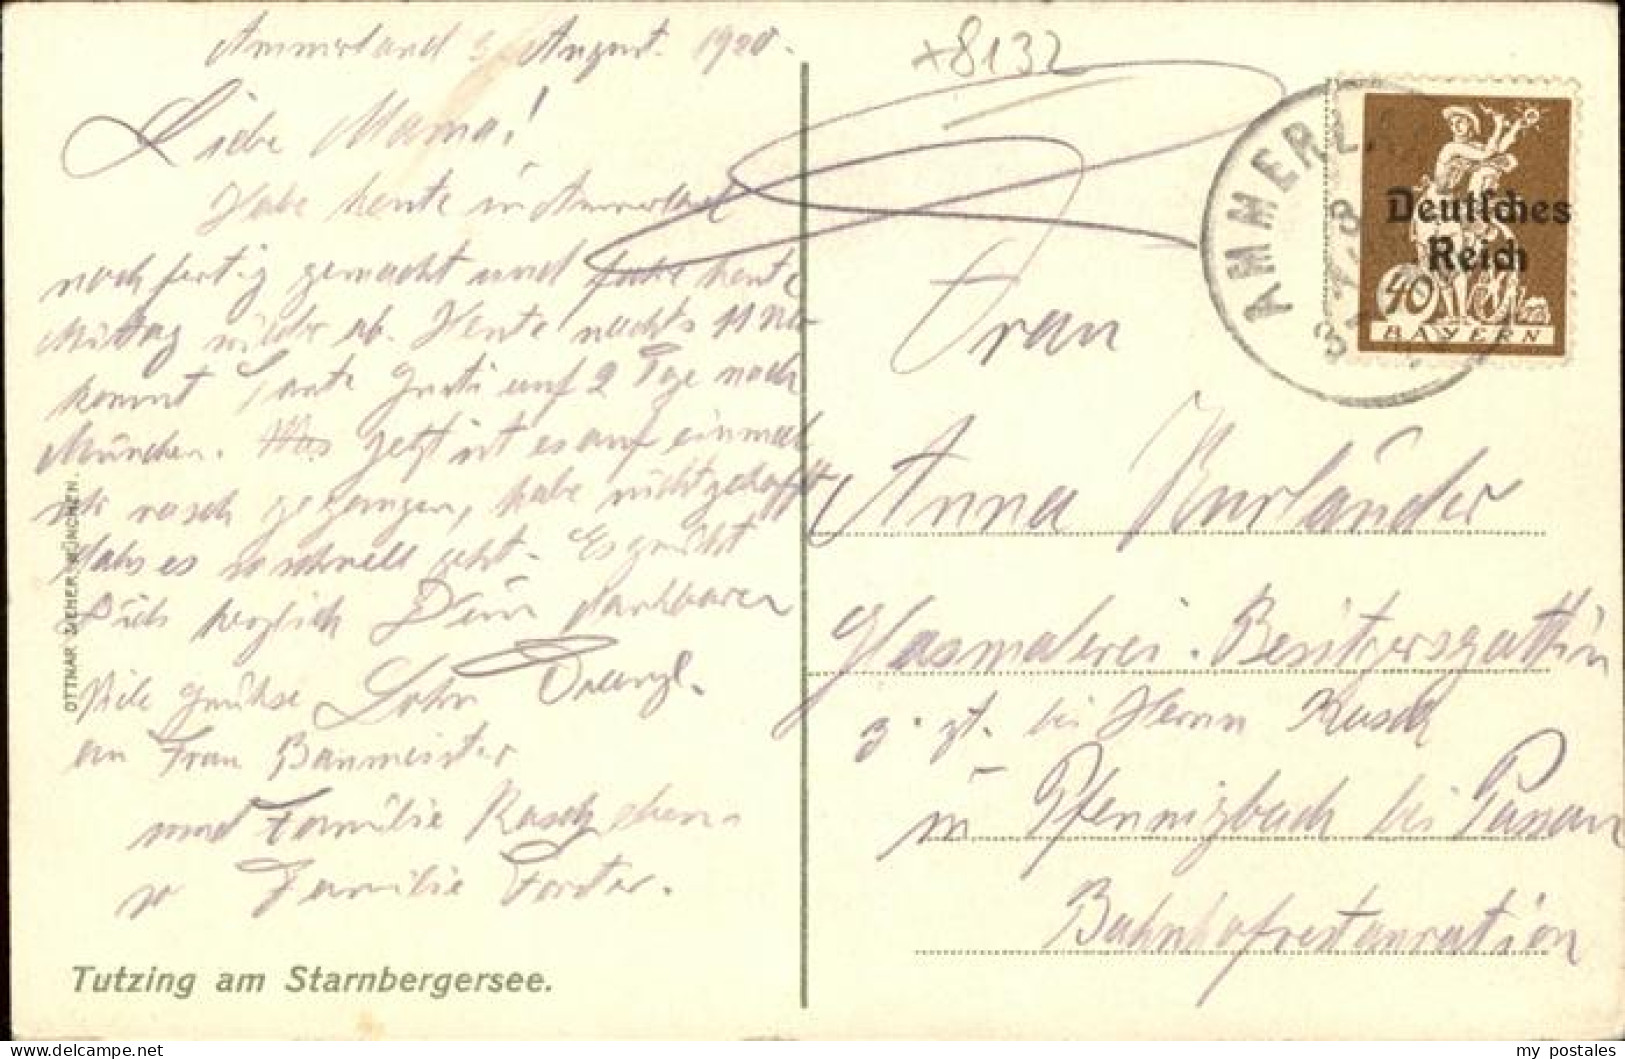 Ammerland 3. August. 1920.
Liebe Mama!
Habe heute in Ammerland
noch fertig gemacht und fahre heute
Mittag wieder ab. Heute nachts 11 Uhr
kommt Tante Gusti auf 2 Tage nach
München. Jetzt ist es auf einmal
so rasch gegangen, habe nicht gehofft
dass es so schnell geht. Es grüsst
Dich herzlich Dein dankbarer
Viele Grüsse Sohn Franzl.
an Frau Baumeister
und Familie Rasch eben-
so Familie Forster.
Tutzing am Starnbergersee.
OTTMAR ZIEHER, MÜNCHEN.
+8132
AMMERLAND
Deutsches
Reich
40
BAYERN
Frau
Anna Kurländer
Glasmalerei-Besitzersgattin
z. Zt. bei Herrn Rasch
in Pfennigbach bei Passau
Bahnhofrestauration
my postales